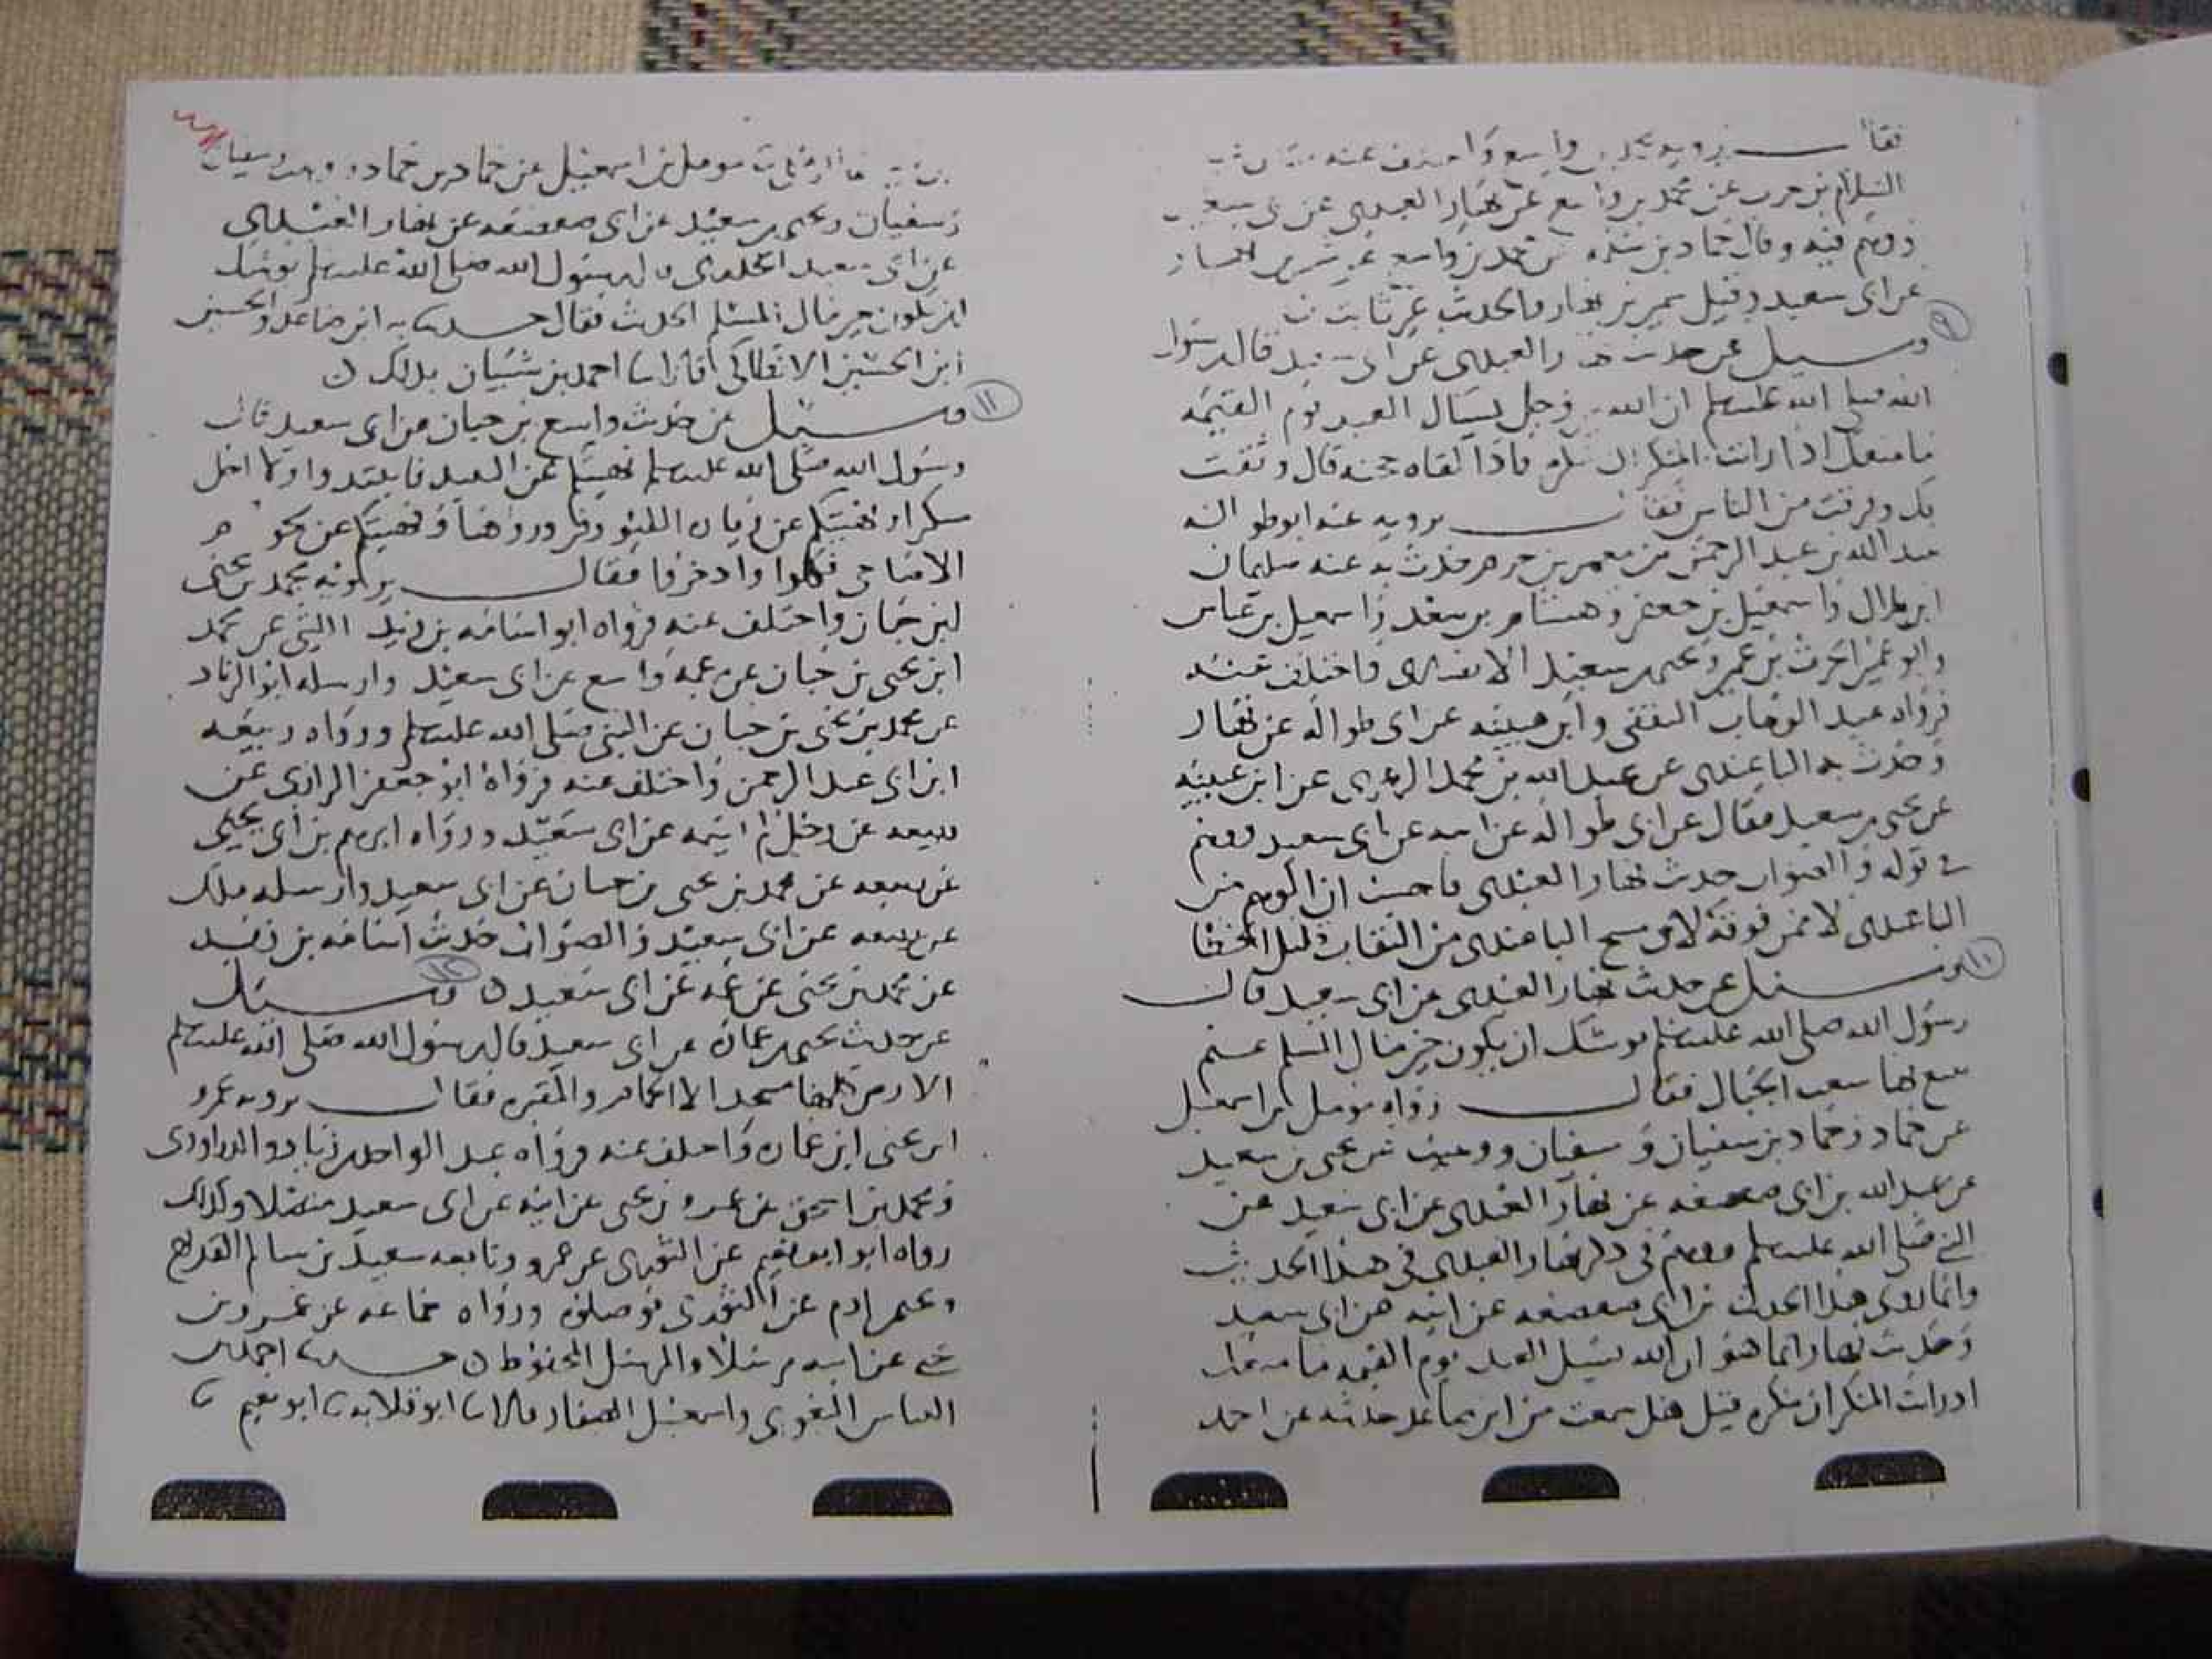 فقال يرويه محمد بن واسع واختلف عنه
السلام بن حرب عن محمد بن واسع عن نهار العبدي عن ابي سعيد
ووهم فيه وقال حماد بن سلمه عن محمد بن واسع عن
عن ابي سعيد وقيل سمير بن نهار والحديث غير ثابت
٩
وسيل عن حديث نهار العبدي عن ابي سعيد قال رسول
الله صلى الله عليه وسلم ان الله عز وجل يسال العبد يوم القيمه
ما منعك اذا رايت المنكر ان تنكره فاذا لقاه حجته قال وثقت
بك وفرقت من الناس فقال يرويه عنه ابو طواله
عبد الله بن عبد الرحمن بن معمر بن حزم حدث به عنه سليمان
ابن بلال واسمعيل بن جعفر وهشام بن سعد واسمعيل بن عياش
وابو عمير الحرث بن عمير ويحيى بن سعيد الانصاري واختلف عنه
فرواه عبد الوهاب الثقفي وابن عيينه عن ابي طواله عن نهار
وحدث به الباغندي عن عبد الله بن محمد الزهري عن ابن عيينه
عن يحيى بن سعيد فقال عن ابي طواله عن ابيه عن ابي سعيد ووهم
في قوله والصواب حديث نهار العبدي واحسب ان الوهم من
الباغندي لا ممن فوقه لان شيخ الباغندي من الثقات قليل الخطا
١٠
وسيل عن حديث نهار العبدي عن ابي سعيد قال
رسول الله صلى الله عليه وسلم يوشك ان يكون خير مال المسلم غنم
يتبع بها شعب الجبال فقال رواه مومل بن اسمعيل
عن حماد وحماد بن سفيان وسفيان ووهيب عن يحيى بن سعيد
عن عبد الله بن ابي صعصعه عن نهار العبدي عن ابي سعيد عن
النبي صلى الله عليه وسلم ووهم في ذكر نهار العبدي في هذا الحديث
وانما روى هذا الحديث ابن ابي صعصعه عن ابيه عن ابي سعيد
وحديث نهار انما هو ان الله يسيل العبد يوم القيمه ما منعك
اذ رايت المنكر ان تنكره قيل هل سمعت من ابن صاعد حديثه عن احمد
مومل بن اسمعيل عن حماد بن حماد ووهيب وسفيان
وسفيان ويحيى بن سعيد عن ابي صعصعه عن نهار العبدي
عن ابي سعيد الخدري قال رسول الله صلى الله عليه وسلم يوشك
ان يكون خير مال المسلم الحديث فقال حدثنا به ابن صاعد والحسين
ابن الحسين الانطاكي قالا ثنا احمد بن شيبان بذلك ن
١١
وسيل عن حديث واسع بن حبان عن ابي سعيد قال
رسول الله صلى الله عليه وسلم نهيتكم عن النبيذ فانتبذوا ولا احل
مسكرا ونهيتكم عن زياره القبور فزوروها ونهيتكم عن لحوم
الاضاحي فكلوا وادخروا فقال يرويه محمد بن يحيى
ابن حبان واختلف عنه فرواه ابو اسامه بن زيد الليثي عن محمد
ابن يحيى بن حبان عن عمه واسع عن ابي سعيد وارسله ابو الزناد
عن محمد بن يحيى بن حبان عن النبي صلى الله عليه وسلم ورواه ربيعه
ابن ابي عبد الرحمن واختلف عنه فرواه ابو جعفر الرازي عن
ربيعه عن رجل عن ابي سعيد ورواه ابرهيم بن ابي يحيى
عن ربيعه عن محمد بن يحيى بن حبان عن ابي سعيد وارسله ملك
عن ربيعه عن ابي سعيد والصواب حديث اسامه بن زيد
عن محمد بن يحيى عن عمه عن ابي سعيد ن ١٢ وسيل
عن حديث يحيى بن عماره عن ابي سعيد قال رسول الله صلى الله عليه وسلم
الارض كلها مسجد الا الحمام والمقبره فقال يرويه عمرو
ابن يحيى ابن عماره واختلف عنه فرواه عبد الواحد بن زياد والدراوردي
ومحمد بن اسحق عن عمرو بن يحيى عن ابيه عن ابي سعيد متصلا وكذلك
رواه ابو نعيم عن الثوري عن عمرو وتابعه سعيد بن سالم القداح
ويحيى بن ادم عن الثوري فوصلوه ورواه جماعه عن عمرو بن
يحيى عن ابيه مرسلا والمرسل المحفوظ ن حدثنا احمد بن
العباس البغوي واسمعيل الصفار قالا ثنا ابو قلابه ثنا ابو نعيم ثنا